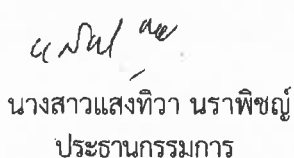 นางสาวแสงทิวา นราพิชญ์
ประธานกรรมการ